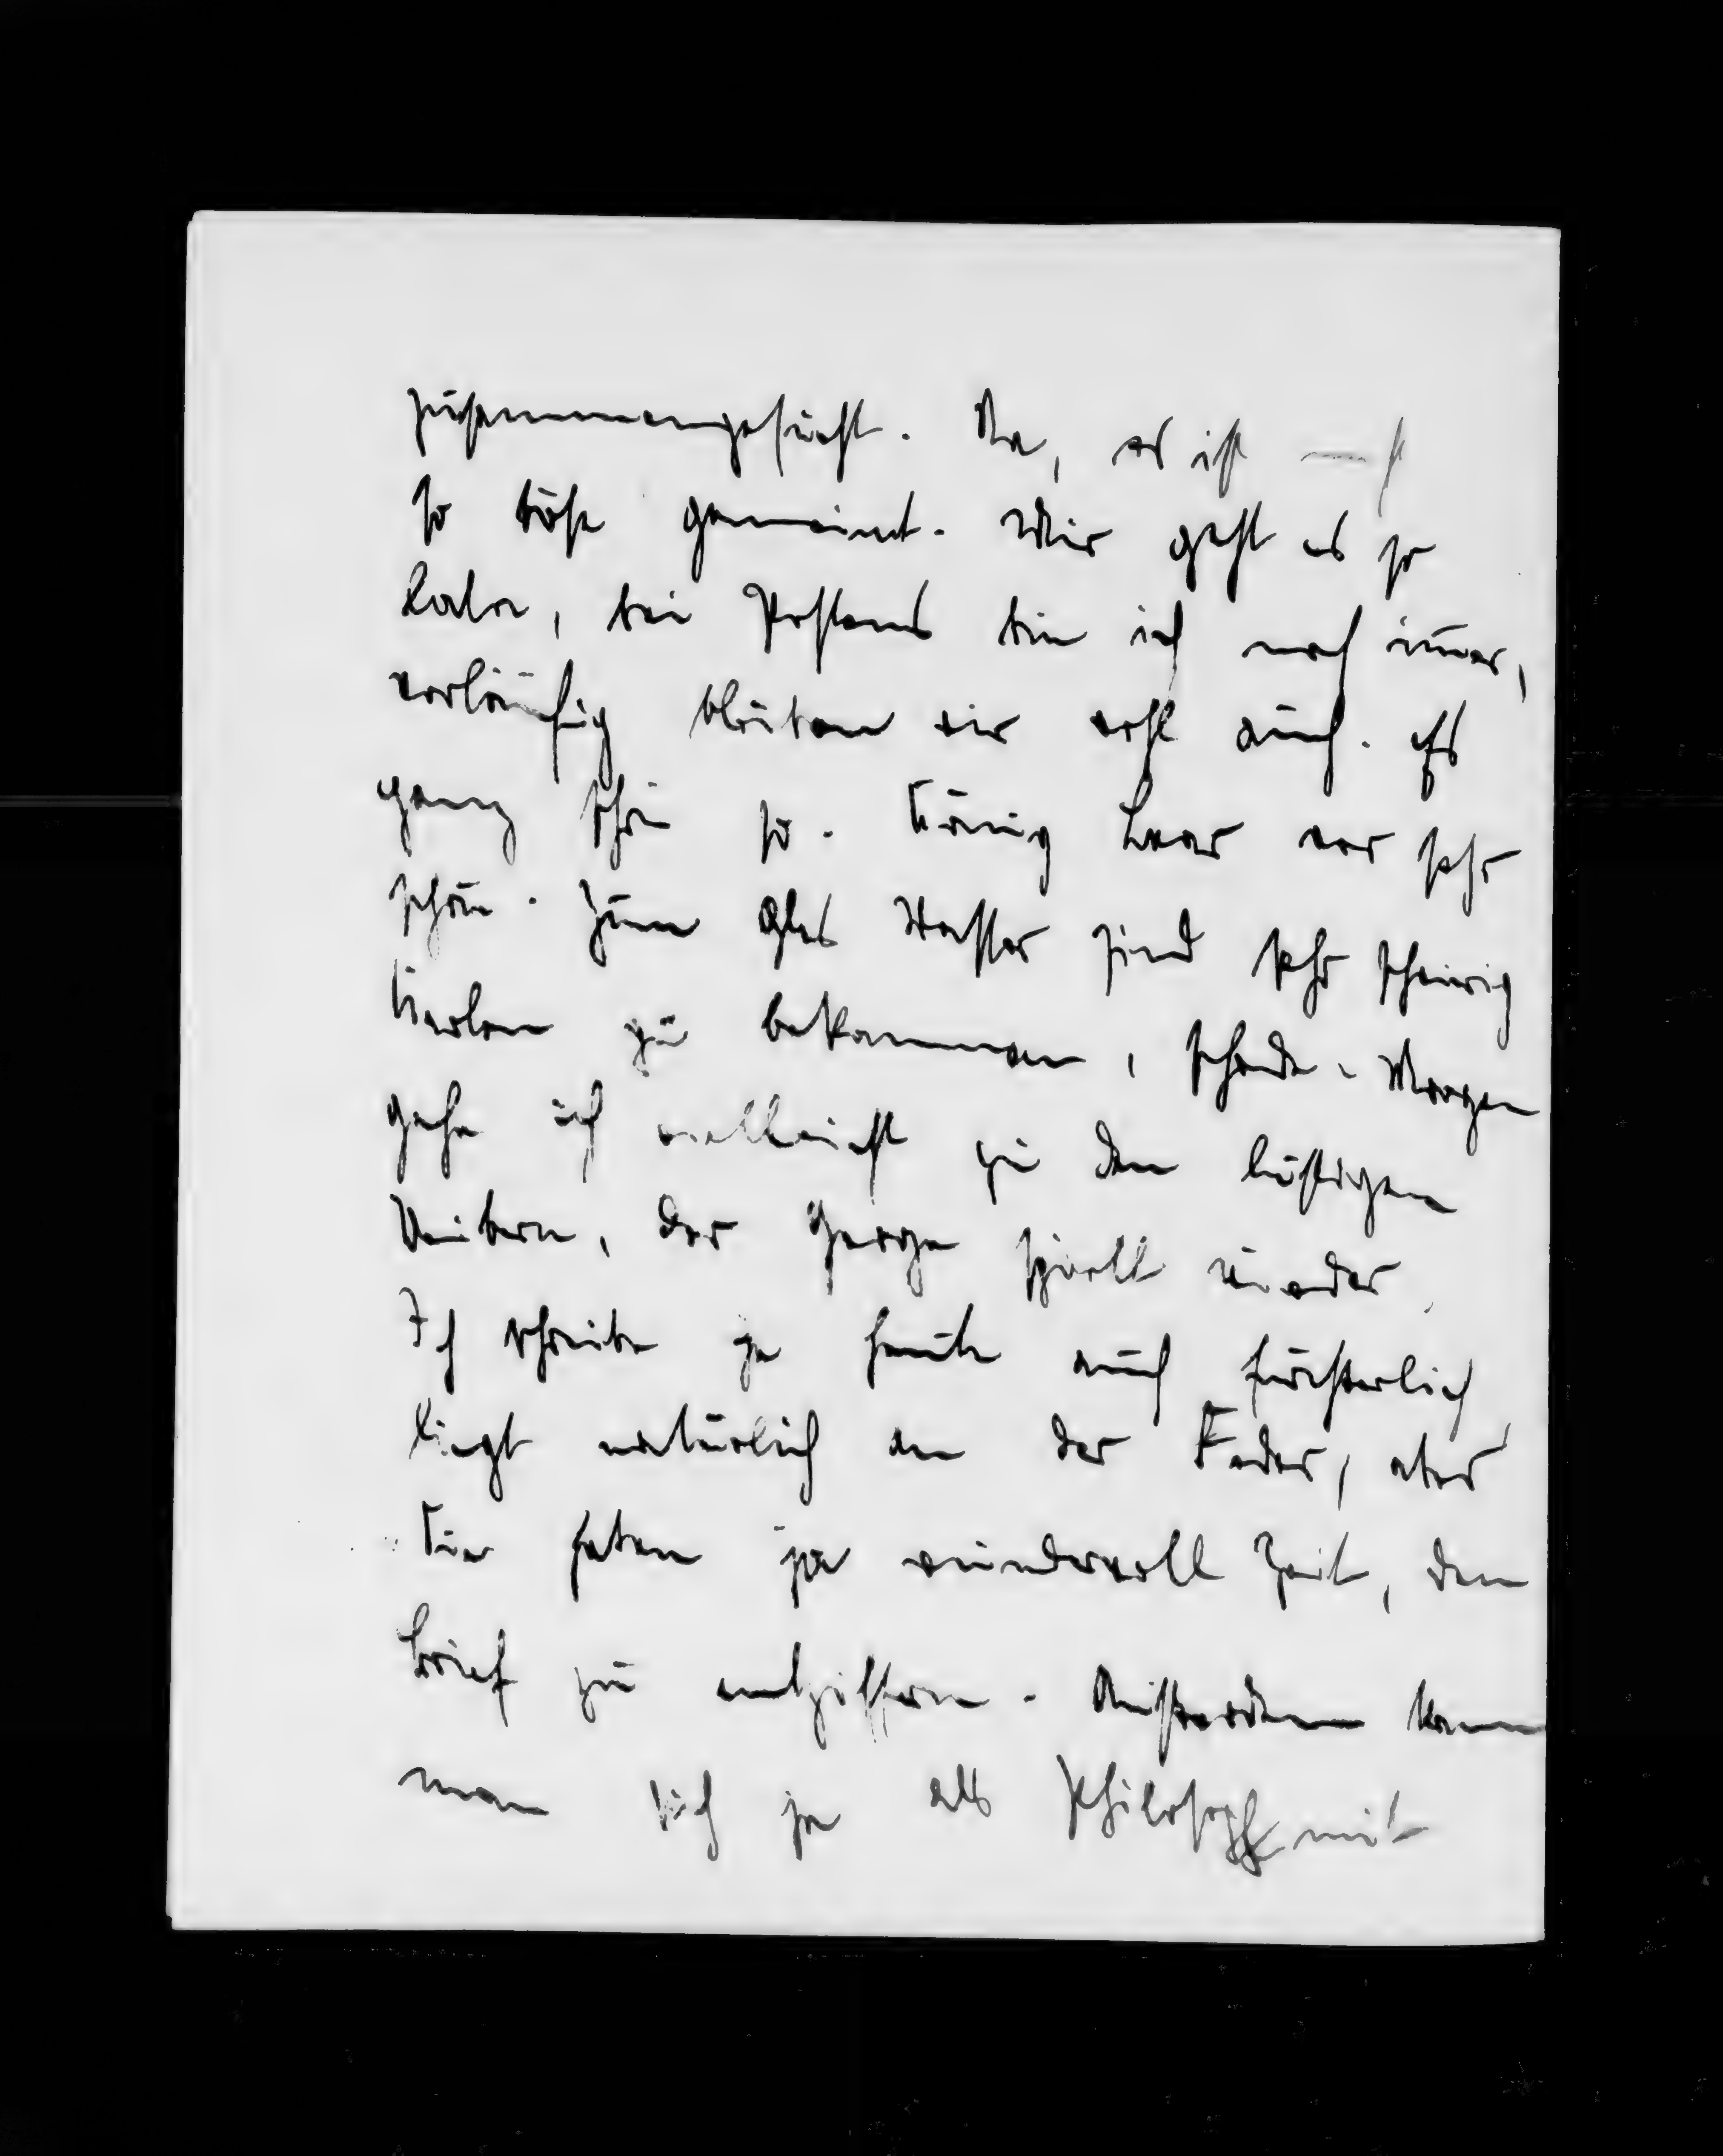 zusammengesucht. Na, es ist nicht
so böse gemeint. Mir geht es so
lala, bei Postens bin ich noch immer,
vorläufig bleiben wir wohl auch. Ist
ganz schön so. König Lear war sehr
schön. Zum Glas Wasser sind sehr schwierig
Karten zu bekommen, schade. Morgen
gehe ich vielleicht zu den lustigen
Weibern, der George spielt wieder.
Ich schreibe ja heute auch fürchterlich,
liegt natürlich an der Feder, aber
Sie haben ja wundervoll Zeit, den
Brief zu entziffern. Außerdem kann
man sich ja als Philosoph mit